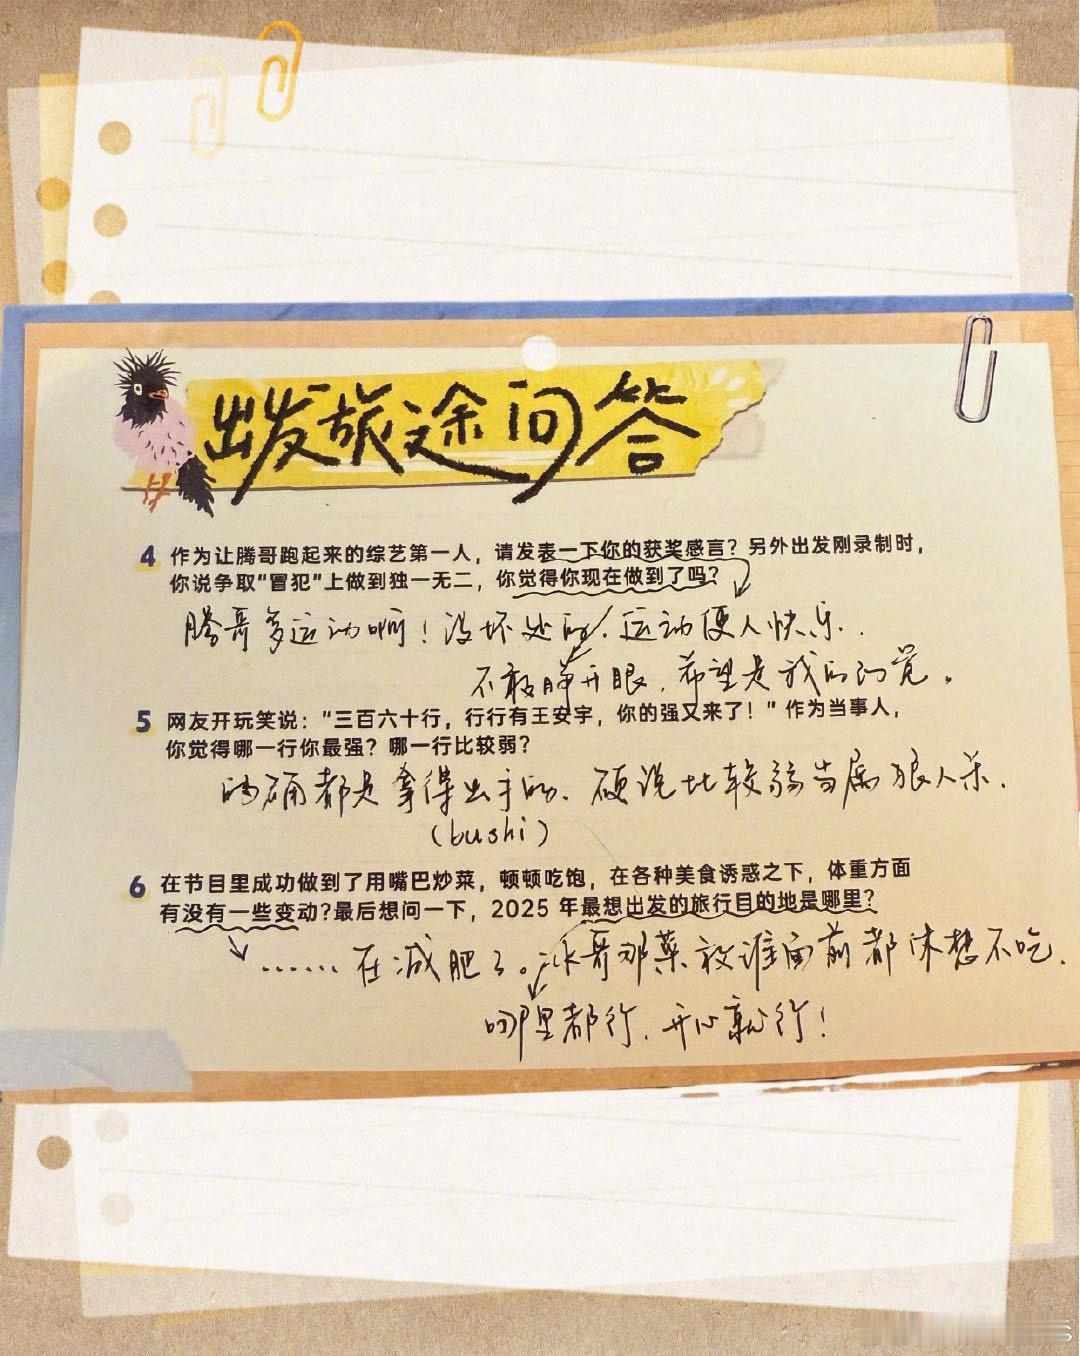 出发旅途问答
4 作为让腾哥跑起来的综艺第一人，请发表一下你的获奖感言？另外出发刚录制时，
你说争取“冒犯”上做到独一无二，你觉得你现在做到了吗？
腾哥多运动啊！没坏处的，运动使人快乐．
不敢睁开眼，希望是我的幻觉。
5 网友开玩笑说：“三百六十行，行行有王安宇，你的强又来了！”作为当事人，
你觉得哪一行你最强？哪一行比较弱？
的确都是拿得出手的、硬说比较弱当属狼人杀．
（bushi）
6 在节目里成功做到了用嘴巴炒菜，顿顿吃饱，在各种美食诱惑之下，体重方面
有没有一些变动?最后想问一下，2025 年最想出发的旅行目的地是哪里？
……在减肥了。冰哥那菜放谁面前都休想不吃．
哪里都行．开心就行！